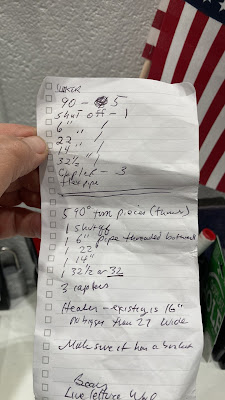 90 - 5
shut off - 1
6" " 1
22 " 1
14 " 1
32½ " 1
Coupler - 3
flex pipe
5 90° turn pieces (turns)
1 shut off
1 6" pipe threaded both ends
1 22"
1 14"
1 32½ or 32
3 couplers
Heater - existing is 16"
no bigger than 27 wide
Make sure it has a
Live lettuce